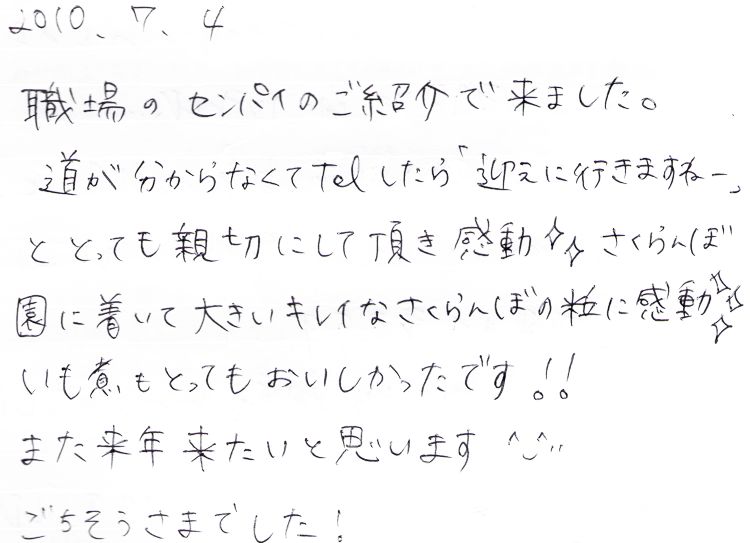 2010、7、4
職場のセンパイのご紹介で来ました。
道が分からなくてTelしたら「迎えに行きますねー」
ととっても親切にして頂き感動 さくらんぼ
園に着いて大きいキレイなさくらんぼの粒に感動
いも煮もとってもおいしかったです!!
また来年来たいと思います ^◡^
ごちそうさまでした!